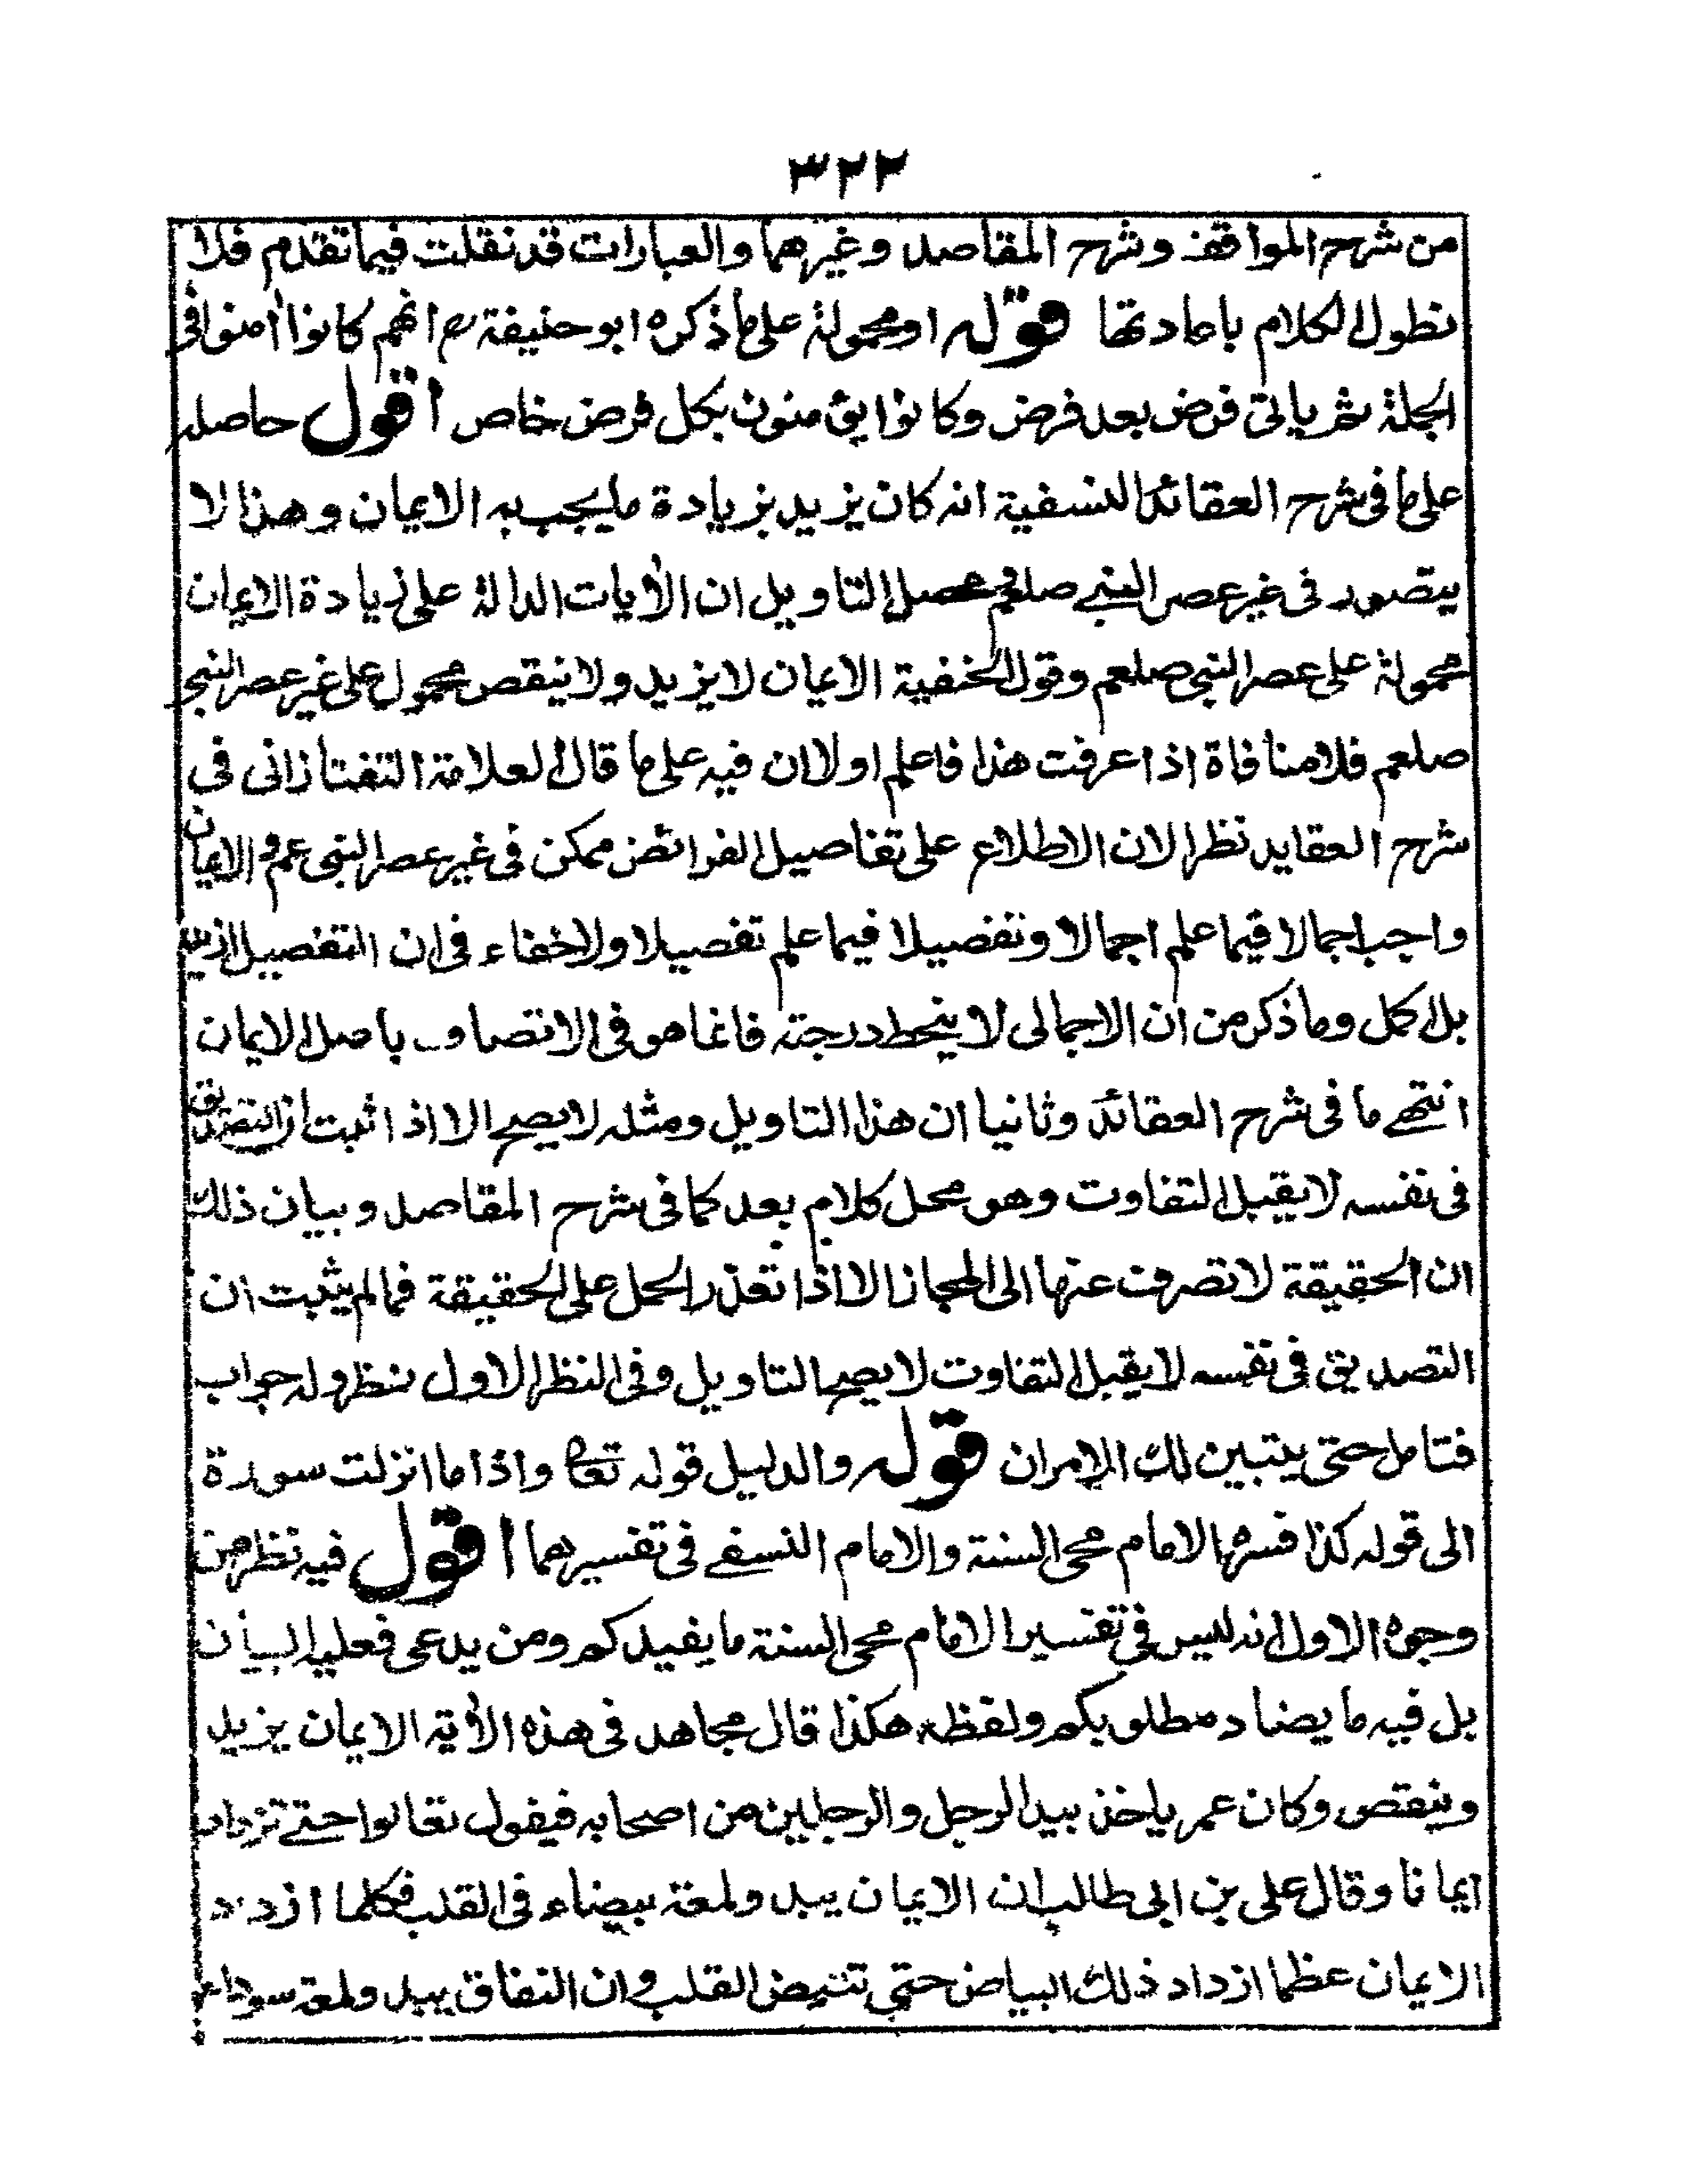 ٣٢٢
من شرح المواقف وشرح المقاصد وغيرهما والعبارات قد نقلت فيما تقدم فلا
نطول الكلام باعادتها قوله او محمولة على ما ذكره ابو حنيفة رح انهم كانوا اٰمنوا فى
الجملة ثم ياتى فرض بعد فرض وكانوا يؤمنون بكل فرض خاص اقول حاصله
على ما فى شرح العقائد النسفية انه كان يزيد بزيادة ما يجب به الايمان وهذا لا
يتصور فى غير عصر النبى صلعم محصل التاويل ان الاٰيات الدالة على زيادة الايمان
محمولة على عصر النبى صلعم وقول الحنفية الايمان لا يزيد ولا ينقص محمول على غير عصر النبى
صلعم فلا منافاة اذا عرفت هذا فاعلم اولا ان فيه على ما قال العلامة التفتازانى فى
شرح العقايد نظرا لان الاطلاع على تفاصيل الفرائض ممكن فى غير عصر النبى عم والايمان
واجب اجمالا فيما علم اجمالا وتفصيلا فيما علم تفصيلا ولا خفاء فى ان التفصيل ازيد
بل اكمل وما ذكر من ان الاجمالى لا ينحط درجته فانما هو فى الاتصاف باصل الايمان
انتهى ما فى شرح العقائد وثانيا ان هذا التاويل ومثله لا يصح الا اذا ثبت ان التصديق
فى نفسه لا يقبل التفاوت وهو محل كلام بعد كما فى شرح المقاصد وبيان ذلك
ان الحقيقة لا تصرف عنها الى المجاز الا اذا تعذر الحمل على الحقيقة فما لم يثبت ان
التصديق فى نفسه لا يقبل التفاوت لا يصح التاويل وفى النظر الاول نظر وله جواب
فتامل حتى يتبين لك الامران قوله والدليل قوله تعا واذا ما انزلت سورة
الى قوله كذا فسرها الامام محى السنة والامام النسفى فى تفسيرهما اقول فيه نظر من
وجوه الاول انه ليس فى تفسير الامام محى السنة ما يفيدكم ومن يدعى فعليه البيان
بل فيه ما يضاد مطلوبكم ولفظه هكذا قال مجاهد فى هذه الاٰية الايمان يزيد
وينقص وكان عمر ياخذ بيد الرجل والرجلين من اصحابه فيقول تعالوا حتى نزداد
ايمانا وقال على بن ابى طالب ان الايمان يبدو لمعة بيضاء فى القلب فكلما ازداد
الايمان عظما ازداد ذلك البياض حتى تبيض القلب وان النفاق يبدو لمعة سوداء